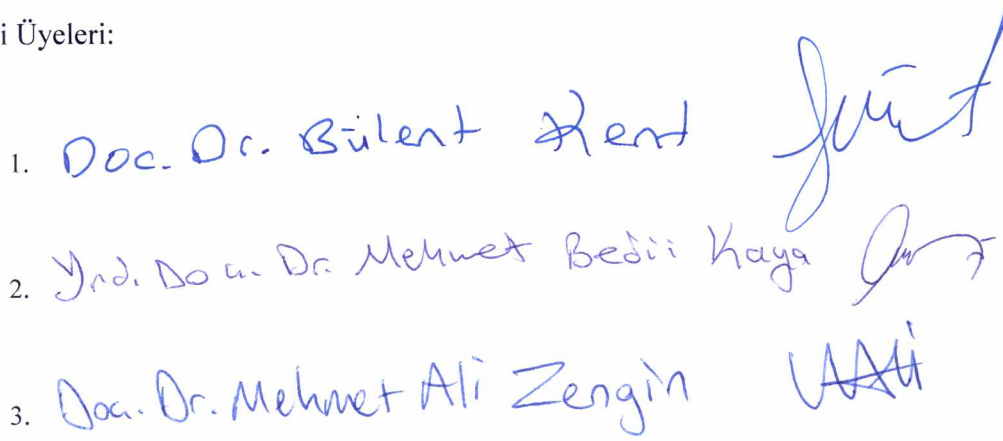 i Üyeleri:
1. Doc. Dr. Bülent Kent
2. Yrd. Doc. Dr. Mehmet Bedii Kaya
3. Doc. Dr. Mehmet Ali Zengin